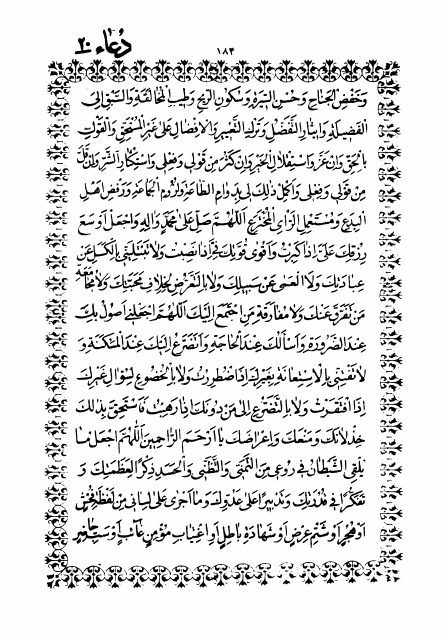 ١٨٤
دُعاء ٢٠
وَخَفْضِ الْجَناحِ وَحُسْنِ السّيرَةِ وَسُكُونِ الرّيحِ وَطيبِ الْمُخالَقَةِ وَالسَّبْقِ اِلَى
الْفَضيلَةِ وَايثارِ التَّفَضُّلِ وَتَرْكِ التَّعْييرِ وَالْاِفْضالِ عَلى غَيْرِ الْمُسْتَحِقِّ وَالْقَوْلِ
بِالْحَقِّ وَاِنْ عَزَّ وَاسْتِقْلالِ الْخَيْرِ وَاِنْ كَثُرَ مِنْ قَوْلى وَفِعْلى وَاسْتِكْثارِ الشَّرِّ وَاِنْ قَلَّ
مِنْ قَوْلى وَفِعْلى وَاَكْمِلْ ذلِكَ لى بِدَوامِ الطّاعَةِ وَلُزُومِ الْجَماعَةِ وَرَفْضِ اَهْلِ
الْبِدَعِ وَمُسْتَعْمِلِ الرَّأىِ الْمُخْتَرَعِ اَللّهُمَّ صَلِّ عَلى مُحَمَّدٍ وَالِهِ وَاجْعَلْ اَوْسَعَ
رِزْقِكَ عَلَىَّ اِذا كَبِرْتُ وَاَقْوى قُوَّتِكَ فِىَّ اِذا نَصِبْتُ وَلا تَبْتَلِيَنّى بِالْكَسَلِ عَنْ
عِبادَتِكَ وَلَا الْعَمى عَنْ سَبيلِكَ وَلا بِالتَّعَرُّضِ لِخِلافِ مَحَبَّتِكَ وَلا مُجامَعَةِ
مَنْ تَفَرَّقَ عَنْكَ وَلا مُفارَقَةِ مَنِ اجْتَمَعَ اِلَيْكَ اَللّهُمَّ اجْعَلْنى اَصُولُ بِكَ
عِنْدَ الضَّرُورَةِ وَاَسْأَلُكَ عِنْدَ الْحاجَةِ وَاَتَضَرَّعُ اِلَيْكَ عِنْدَ الْمَسْكَنَةِ وَ
لا تَفْتِنّى بِالْاِسْتِعانَةِ بِغَيْرِكَ اِذَا اضْطُرِرْتُ وَلا بِالْخُضُوعِ لِسُؤالِ غَيْرِكَ
اِذَا افْتَقَرْتُ وَلا بِالتَّضَرُّعِ اِلى مَنْ دُونَكَ اِذا رَهِبْتُ فَاَسْتَحِقَّ بِذلِكَ
خِذْلانَكَ وَمَنْعَكَ وَاِعْراضَكَ يا اَرْحَمَ الرّاحِمينَ اَللّهُمَّ اجْعَلْ ما
يُلْقِى الشَّيْطانُ فى رُوعى مِنَ التَّمَنّى وَالتَّظَنّى وَالْحَسَدِ ذِكْراً لِعَظَمَتِكَ وَ
تَفَكُّراً فى قُدْرَتِكَ وَتَدْبيراً عَلى عَدُوِّكَ وَما اَجْرى عَلى لِسانى مِنْ لَفْظَةِ فُحْشٍ
اَوْ هُجْرٍ اَوْ شَتْمِ عِرْضٍ اَوْ شَهادَةِ باطِلٍ اَوِ اغْتِيابِ مُؤْمِنٍ غائِبٍ اَوْ سَبِّ حاضِرٍ